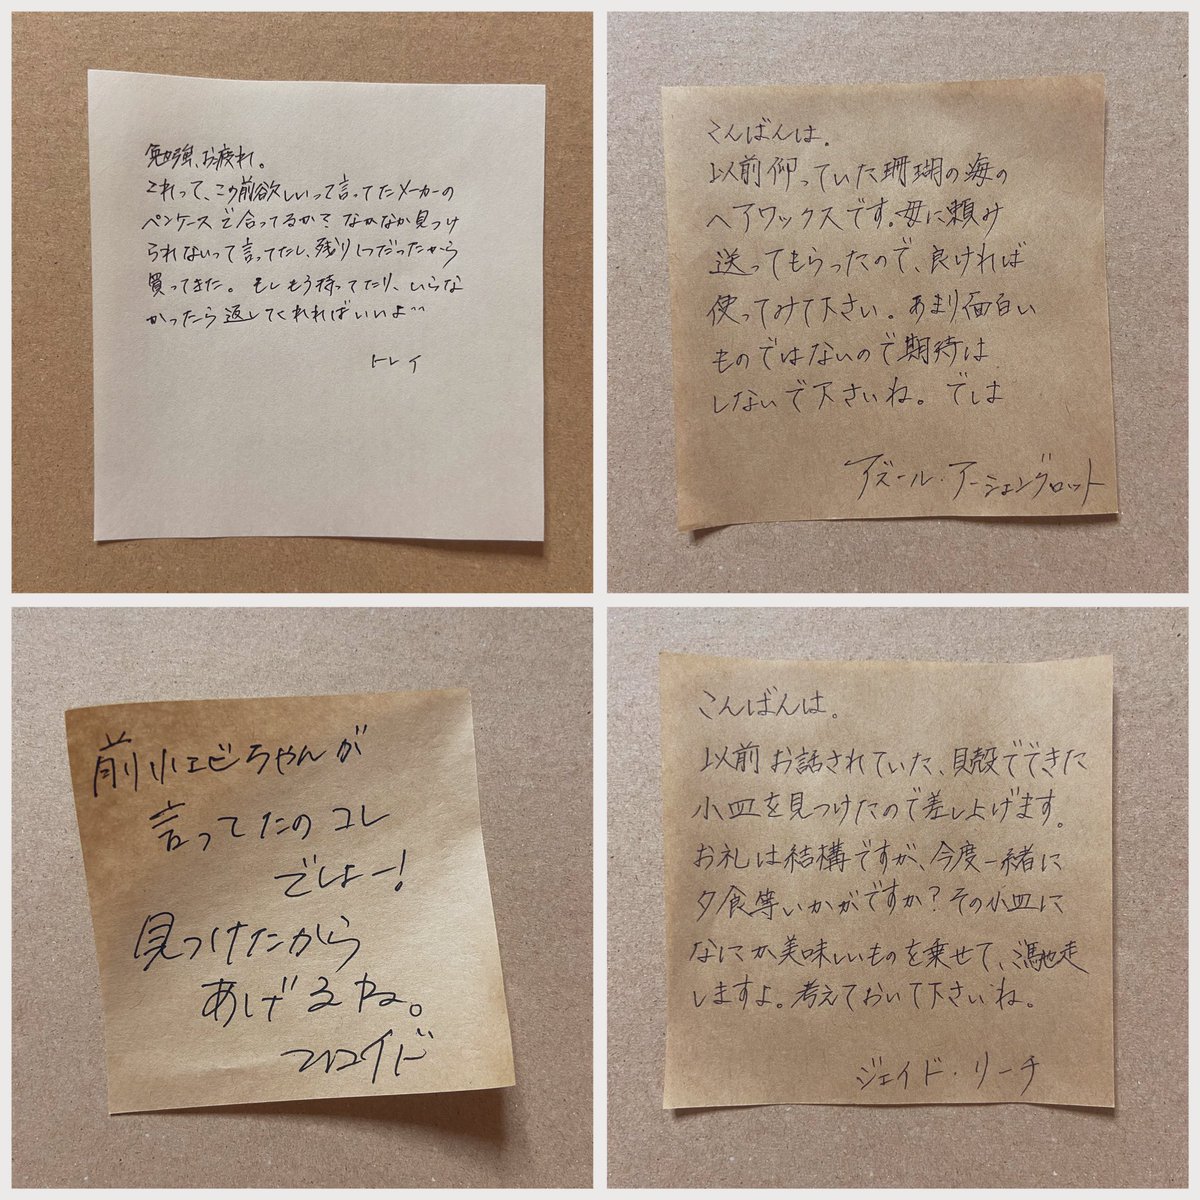 勉強、お疲れ。
これって、この前欲しいって言ってたメーカーの
ペンケースで合ってるか？なかなか見つけ
られないって言ってたし、残り1つだったから
買ってきた。もしもう持ってたり、いらな
かったら返してくれればいいよ^^
トレイ
こんばんは。
以前仰っていた珊瑚の海の
ヘアワックスです。母に頼み
送ってもらったので、良ければ
使ってみて下さい。あまり面白い
ものではないので期待は
しないで下さいね。では
アズール・アーシェングロット
前小エビちゃんが
言ってたのコレ
でしょー!
見つけたから
あげるね。
フロイド
こんばんは。
以前お話されていた、貝殻でできた
小皿を見つけたので差し上げます。
お礼は結構ですが、今度一緒に
夕食等いかがですか？その小皿に
なにか美味しいものを乗せて、馳走
しますよ。考えておいて下さいね。
ジェイド・リーチ